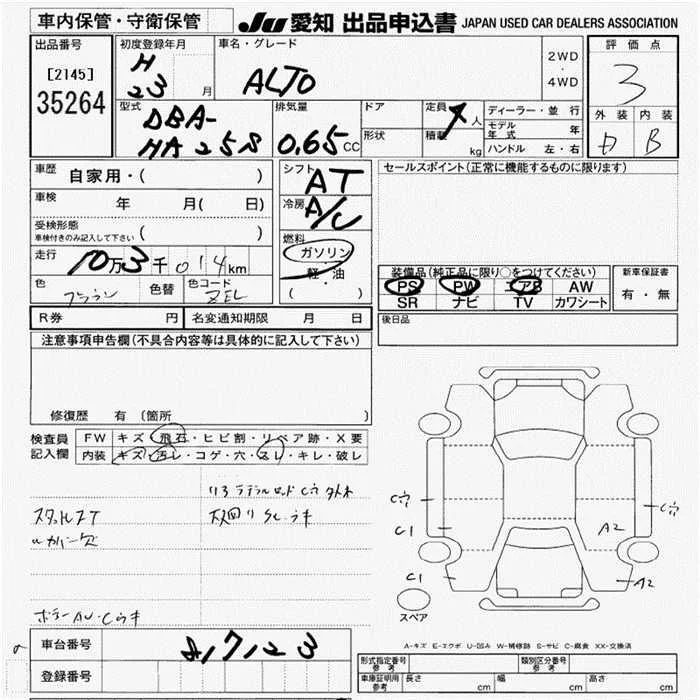 車内保管・守衛保管
JU 愛知 出品申込書 JAPAN USED CAR DEALERS ASSOCIATION
出品番号
[2145]
35264
初度登録年月
H
23 月
車名・グレード
ALTO
2WD
・
4WD
評価点
3
外装 内装
D B
型式
DBA-
HA25S
排気量
0.65 CC
ドア
形状
定員 4 人
積載 kg
ディーラー・並行
モデル年式 年
ハンドル 左・右
車歴 自家用・( )
車検 年 月( 日)
受検形態
車検付きのみ記入して下さい ( )
走行 10万3千014km
色 ブラウン 色替 色コード ZEL
シフト AT
冷房 A/C
燃料
ガソリン
軽・油
( )
セールスポイント(正常に機能するものに限ります)
装備品(純正品に限り○をつけてください)
PS PW エアB AW
SR ナビ TV カワシート
新車保証書
有・無
R券 円 名変通知期限 月 日
後日品
注意事項申告欄(不具合内容等は具体的に記入して下さい)
修復歴 有 (箇所 )
検査員
記入欄
FW キズ・飛石・ヒビ割・リペア跡・X要
内装 キズ・汚レ・コゲ・穴・スレ・キレ・破レ
スタッドレスT
下回り SC.ウキ
C1
C1
A2
A2
スペア
A-キズ E-エクボ U-凹み W-補修跡 S-サビ C-腐食 XX-交換済
車台番号 817123
登録番号
形式指定番号 参考
類別区分番号 参考
車庫証明用 参考 長さ cm 幅 cm 高さ cm